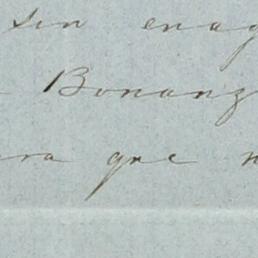 sin enag
Bonanz
ra que